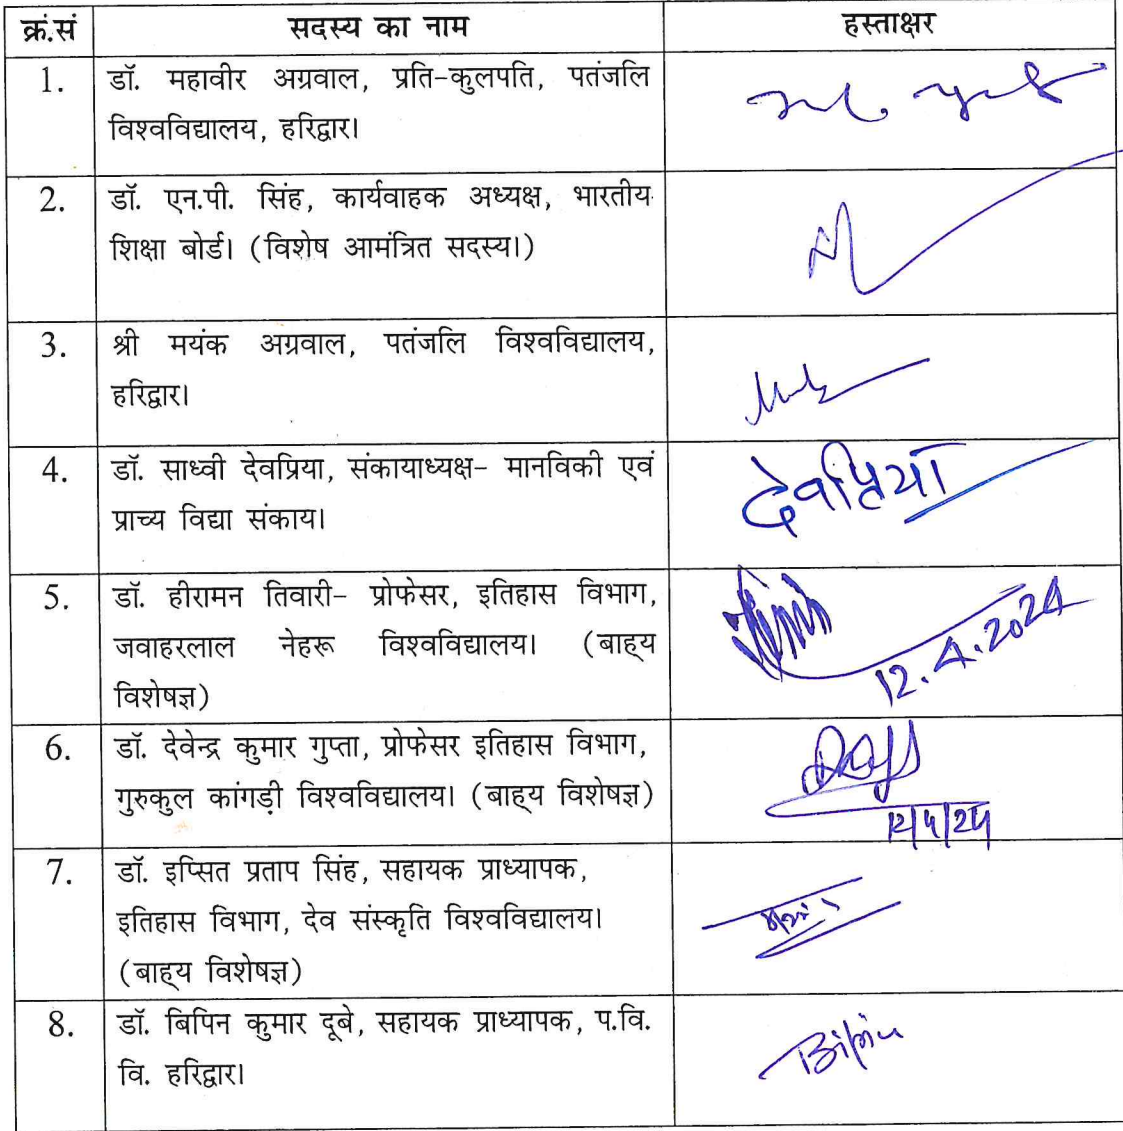 क्रं.सं सदस्य का नाम हस्ताक्षर
1. डॉ. महावीर अग्रवाल, प्रति-कुलपति, पतंजलि
विश्वविद्यालय, हरिद्वार।
2. डॉ. एन.पी. सिंह, कार्यवाहक अध्यक्ष, भारतीय
शिक्षा बोर्ड। (विशेष आमंत्रित सदस्य।)
3. श्री मयंक अग्रवाल, पतंजलि विश्वविद्यालय,
हरिद्वार।
4. डॉ. साध्वी देवप्रिया, संकायाध्यक्ष- मानविकी एवं
प्राच्य विद्या संकाय।
देवप्रिया
5. डॉ. हीरामन तिवारी- प्रोफेसर, इतिहास विभाग,
जवाहरलाल नेहरू विश्वविद्यालय। (बाह्य
विशेषज्ञ)
12.4.2024
6. डॉ. देवेन्द्र कुमार गुप्ता, प्रोफेसर इतिहास विभाग,
गुरुकुल कांगड़ी विश्वविद्यालय। (बाह्य विशेषज्ञ)
12/4/24
7. डॉ. इप्सित प्रताप सिंह, सहायक प्राध्यापक,
इतिहास विभाग, देव संस्कृति विश्वविद्यालय।
(बाह्य विशेषज्ञ)
8. डॉ. बिपिन कुमार दूबे, सहायक प्राध्यापक, प.वि.
वि. हरिद्वार।
Bipin